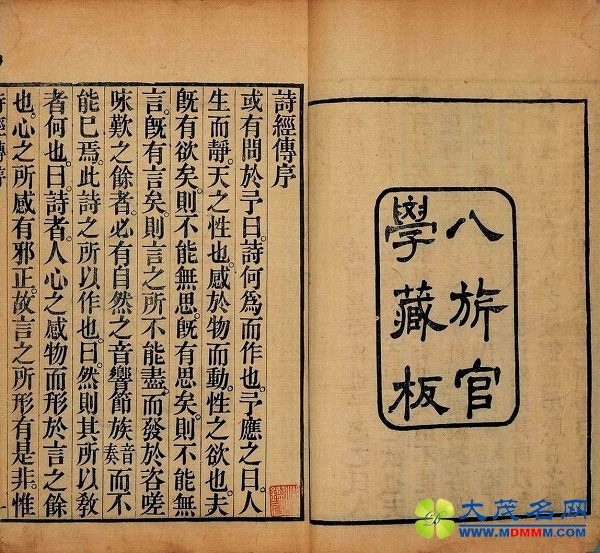 八旂官
學藏板
詩經傳序
或有問於予曰。詩何爲而作也。予應之曰。人
生而靜。天之性也。感於物而動。性之欲也。夫
既有欲矣。則不能無思。既有思矣。則不能無
言。既有言矣。則言之所不能盡。而發於咨嗟
咏歎之餘者。必有自然之音響節族音奏而不
能已焉。此詩之所以作也。曰。然則其所以敎
者何也。曰。詩者。人心之感物而形於言之餘
也。心之所感有邪正。故言之所形有是非。惟
大茂名网
WWW.MDMMM.COM